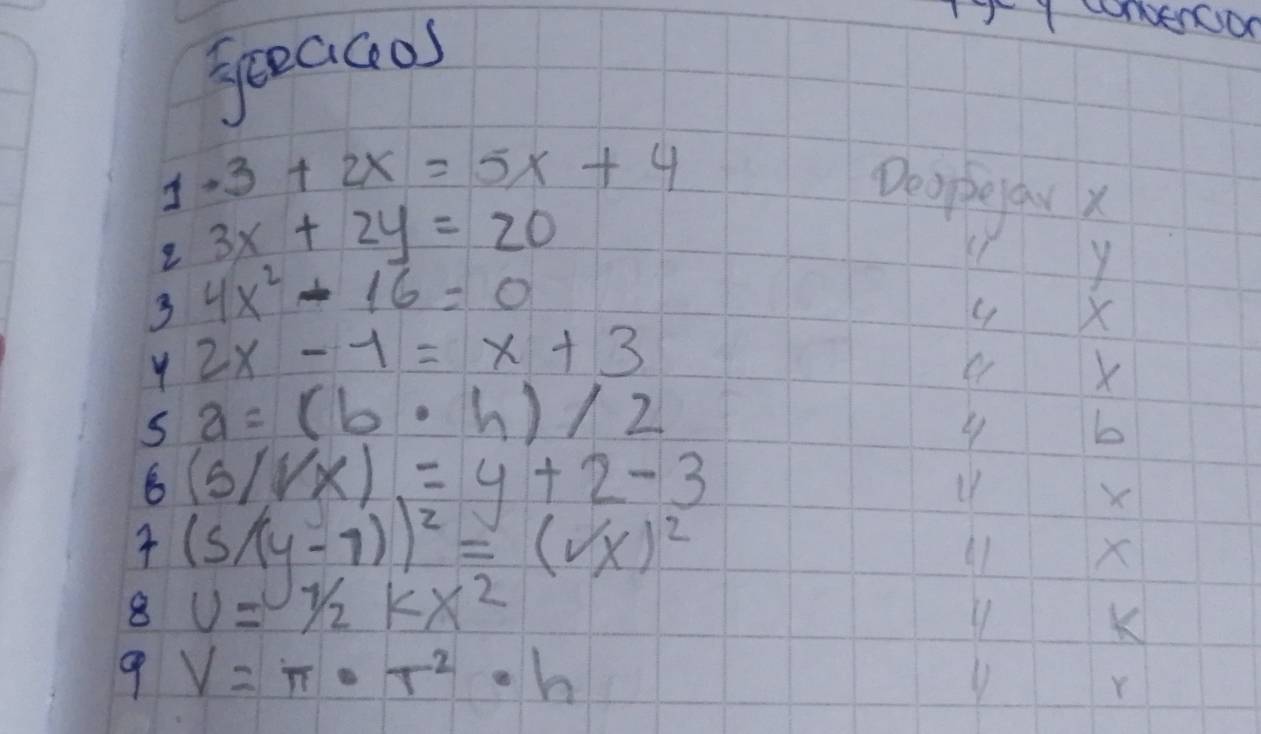 y convencion
Ejercicios
1 -3 + 2x = 5x + 4 Despejar x
2 3x + 2y = 20 " y
3 4x² - 16 = 0 " x
4 2x - 1 = x + 3 " x
5 a = (b • h) / 2 " b
6 (5/√x) = y + 2 - 3 " x
7 (5/(y-1))² = (√x)² " x
8 U = 1/2 kx² " k
9 V = π • r² • h " r